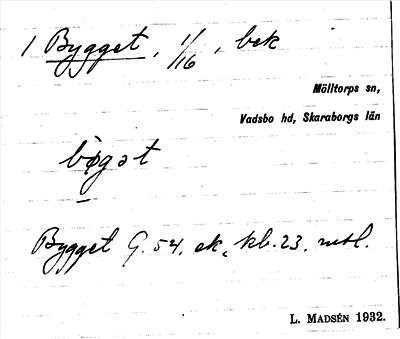 1 Bygget, 1/16, bek
Mölltorps sn,
Vadsbo hd, Skaraborgs län
bøgət
Bygget G. 54. ek, kb. 23. mtl.
L. MADSÉN 1932.